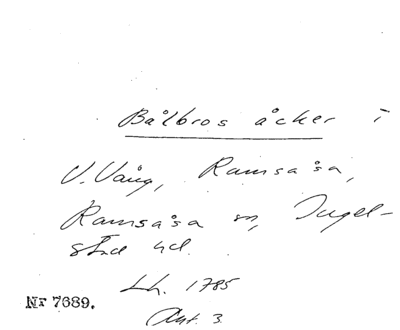 Bålbros åcker i
V. Vång, Ramsåsa,
Ramsåsa sn, Ingel-
stad hd.
Lh. 1785
Akt. 3.
NR 7689.